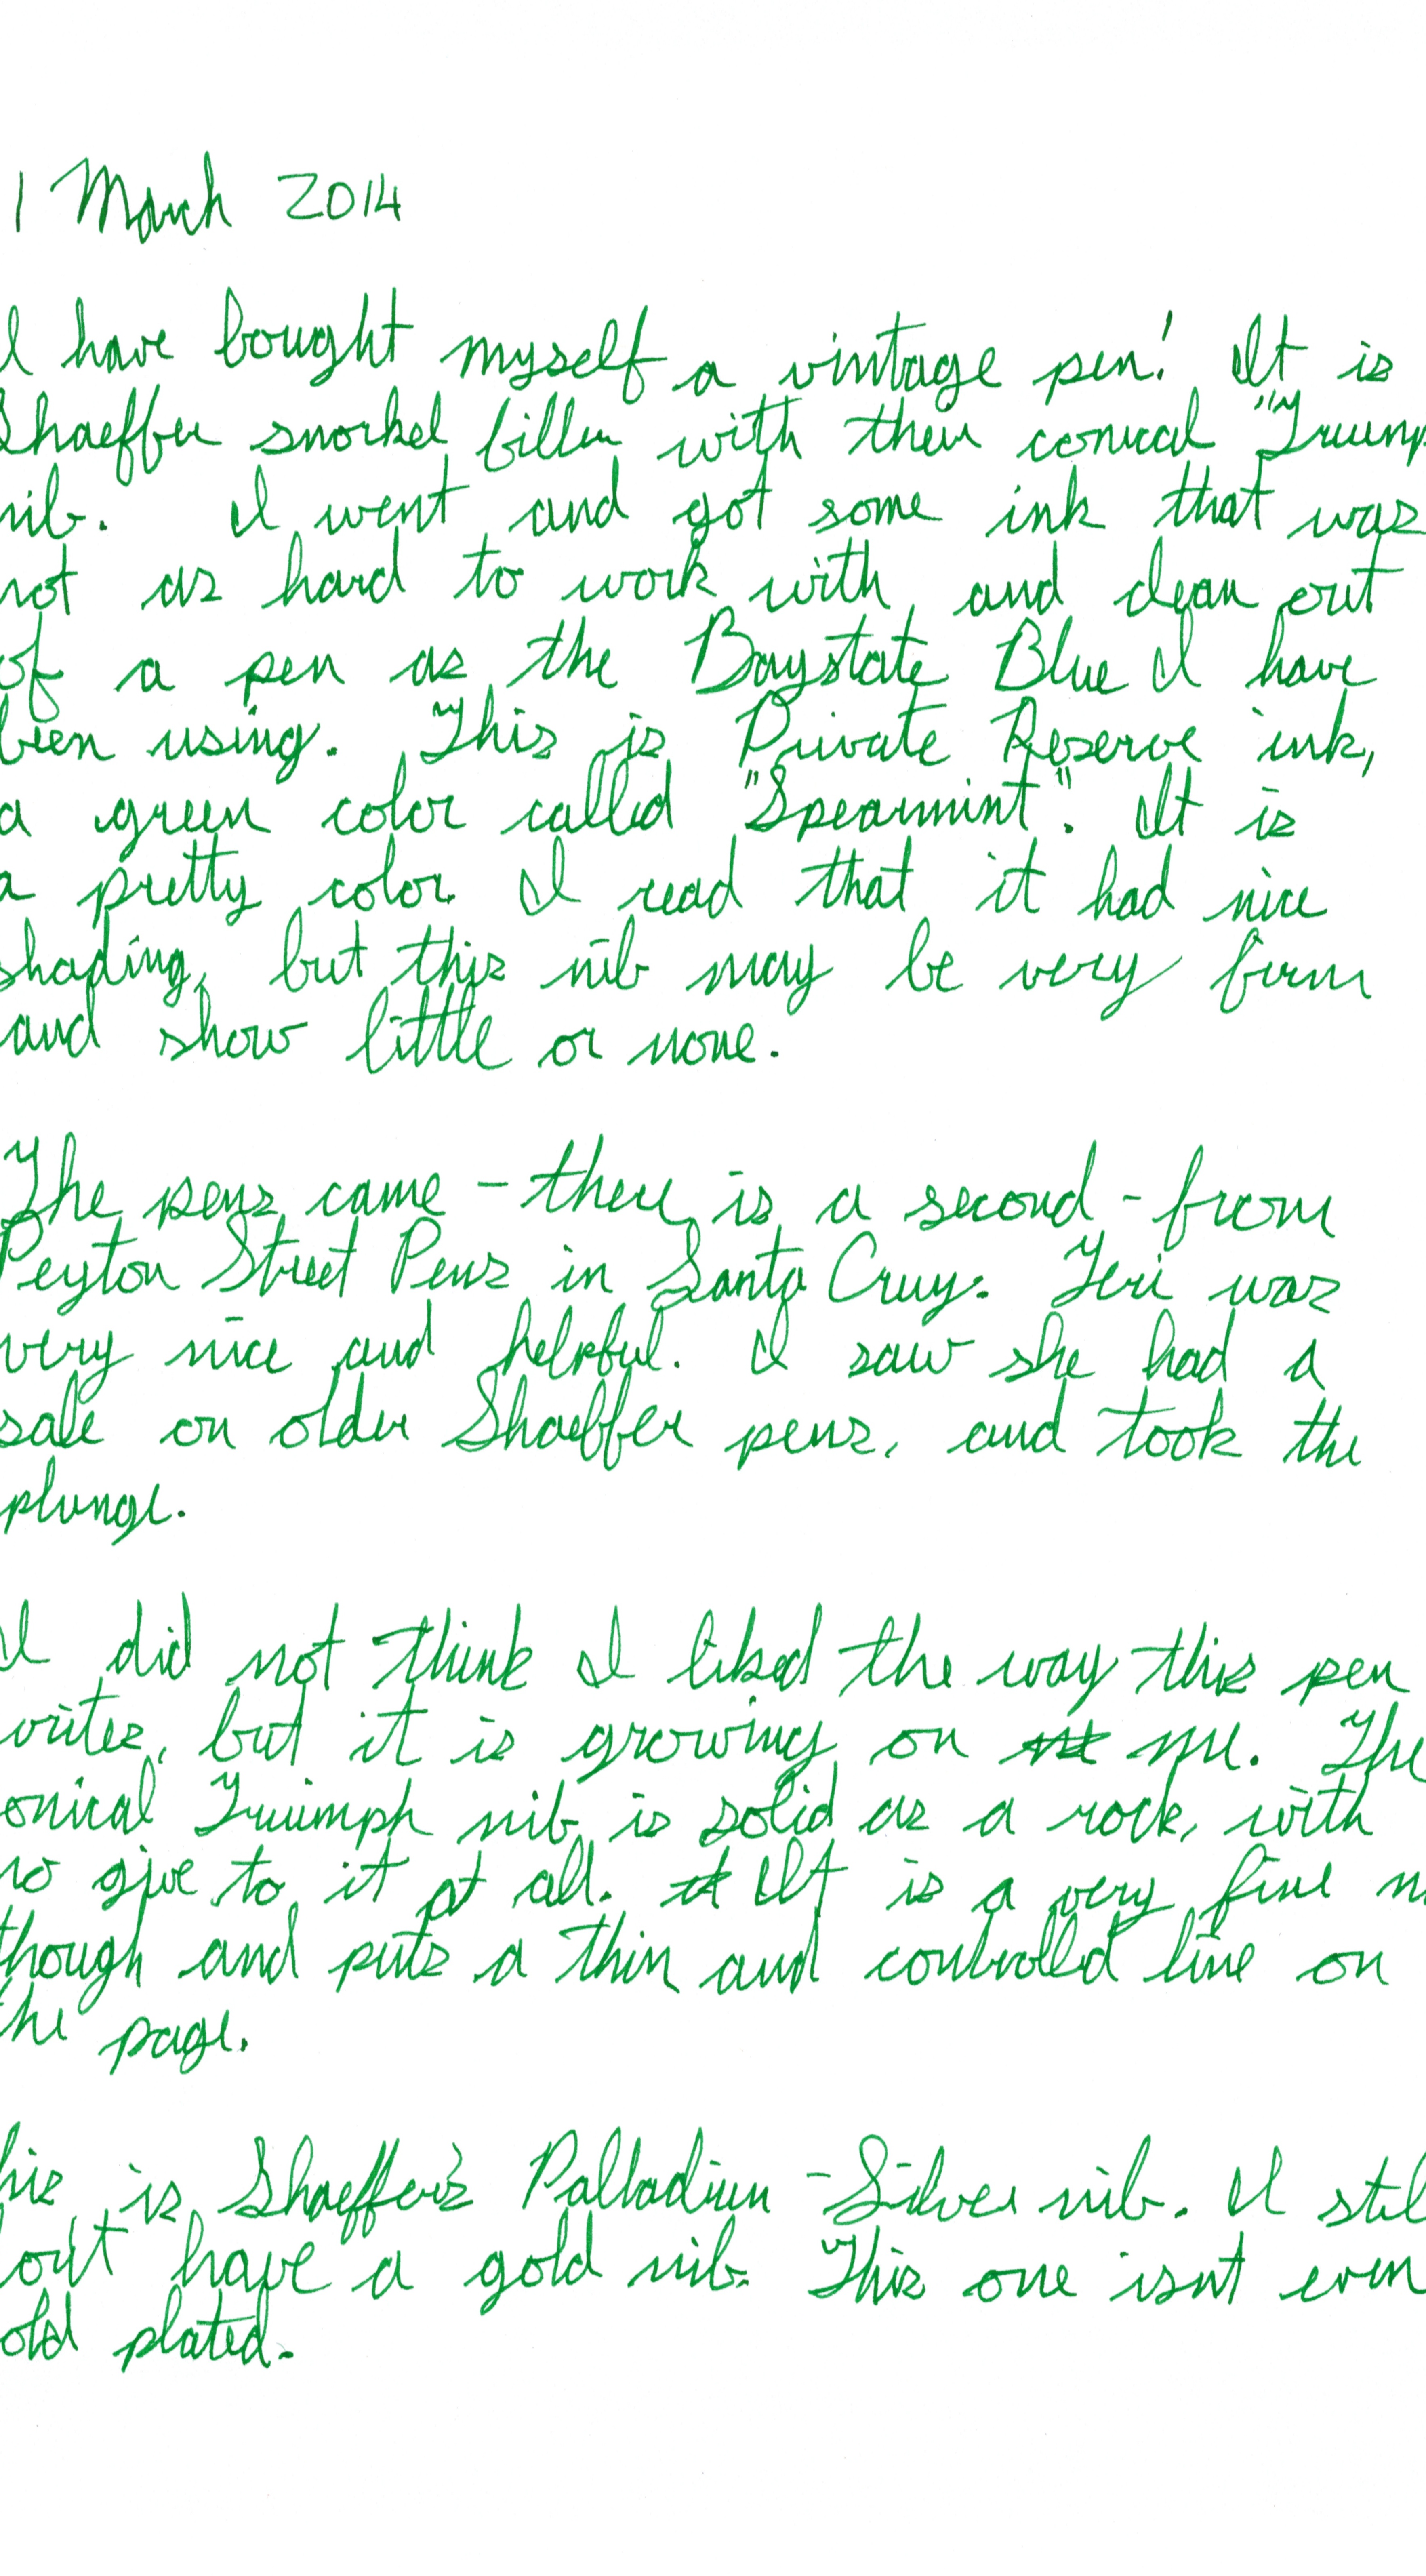 1 March 2014
I have bought myself a vintage pen! It is
Shaeffer snorkel filler with their conical "Trump
nib. I went and got some ink that was
not as hard to work with and clean out
of a pen as the Baystate Blue I have
been using. This is Private Reserve ink,
a green color called "Spearmint". It is
a pretty color. I read that it had nice
shading, but this nib may be very firm
and show little or none.
The pens came - there is a second - from
Peyton Street Pens in Santa Cruz. Teri was
very nice and helpful. I saw she had a
sale on older Shaeffer pens, and took the
plunge.
I did not think I liked the way this pen
writes, but it is growing on me. The
onical Triumph nib is solid as a rock, with
no give to it at all. It is a very fine n
though and puts a thin and controlled line on
the page.
his is Shaeffer's Palladium-Silver nib. I stil
don't have a gold nib. This one isn't even
old plated.